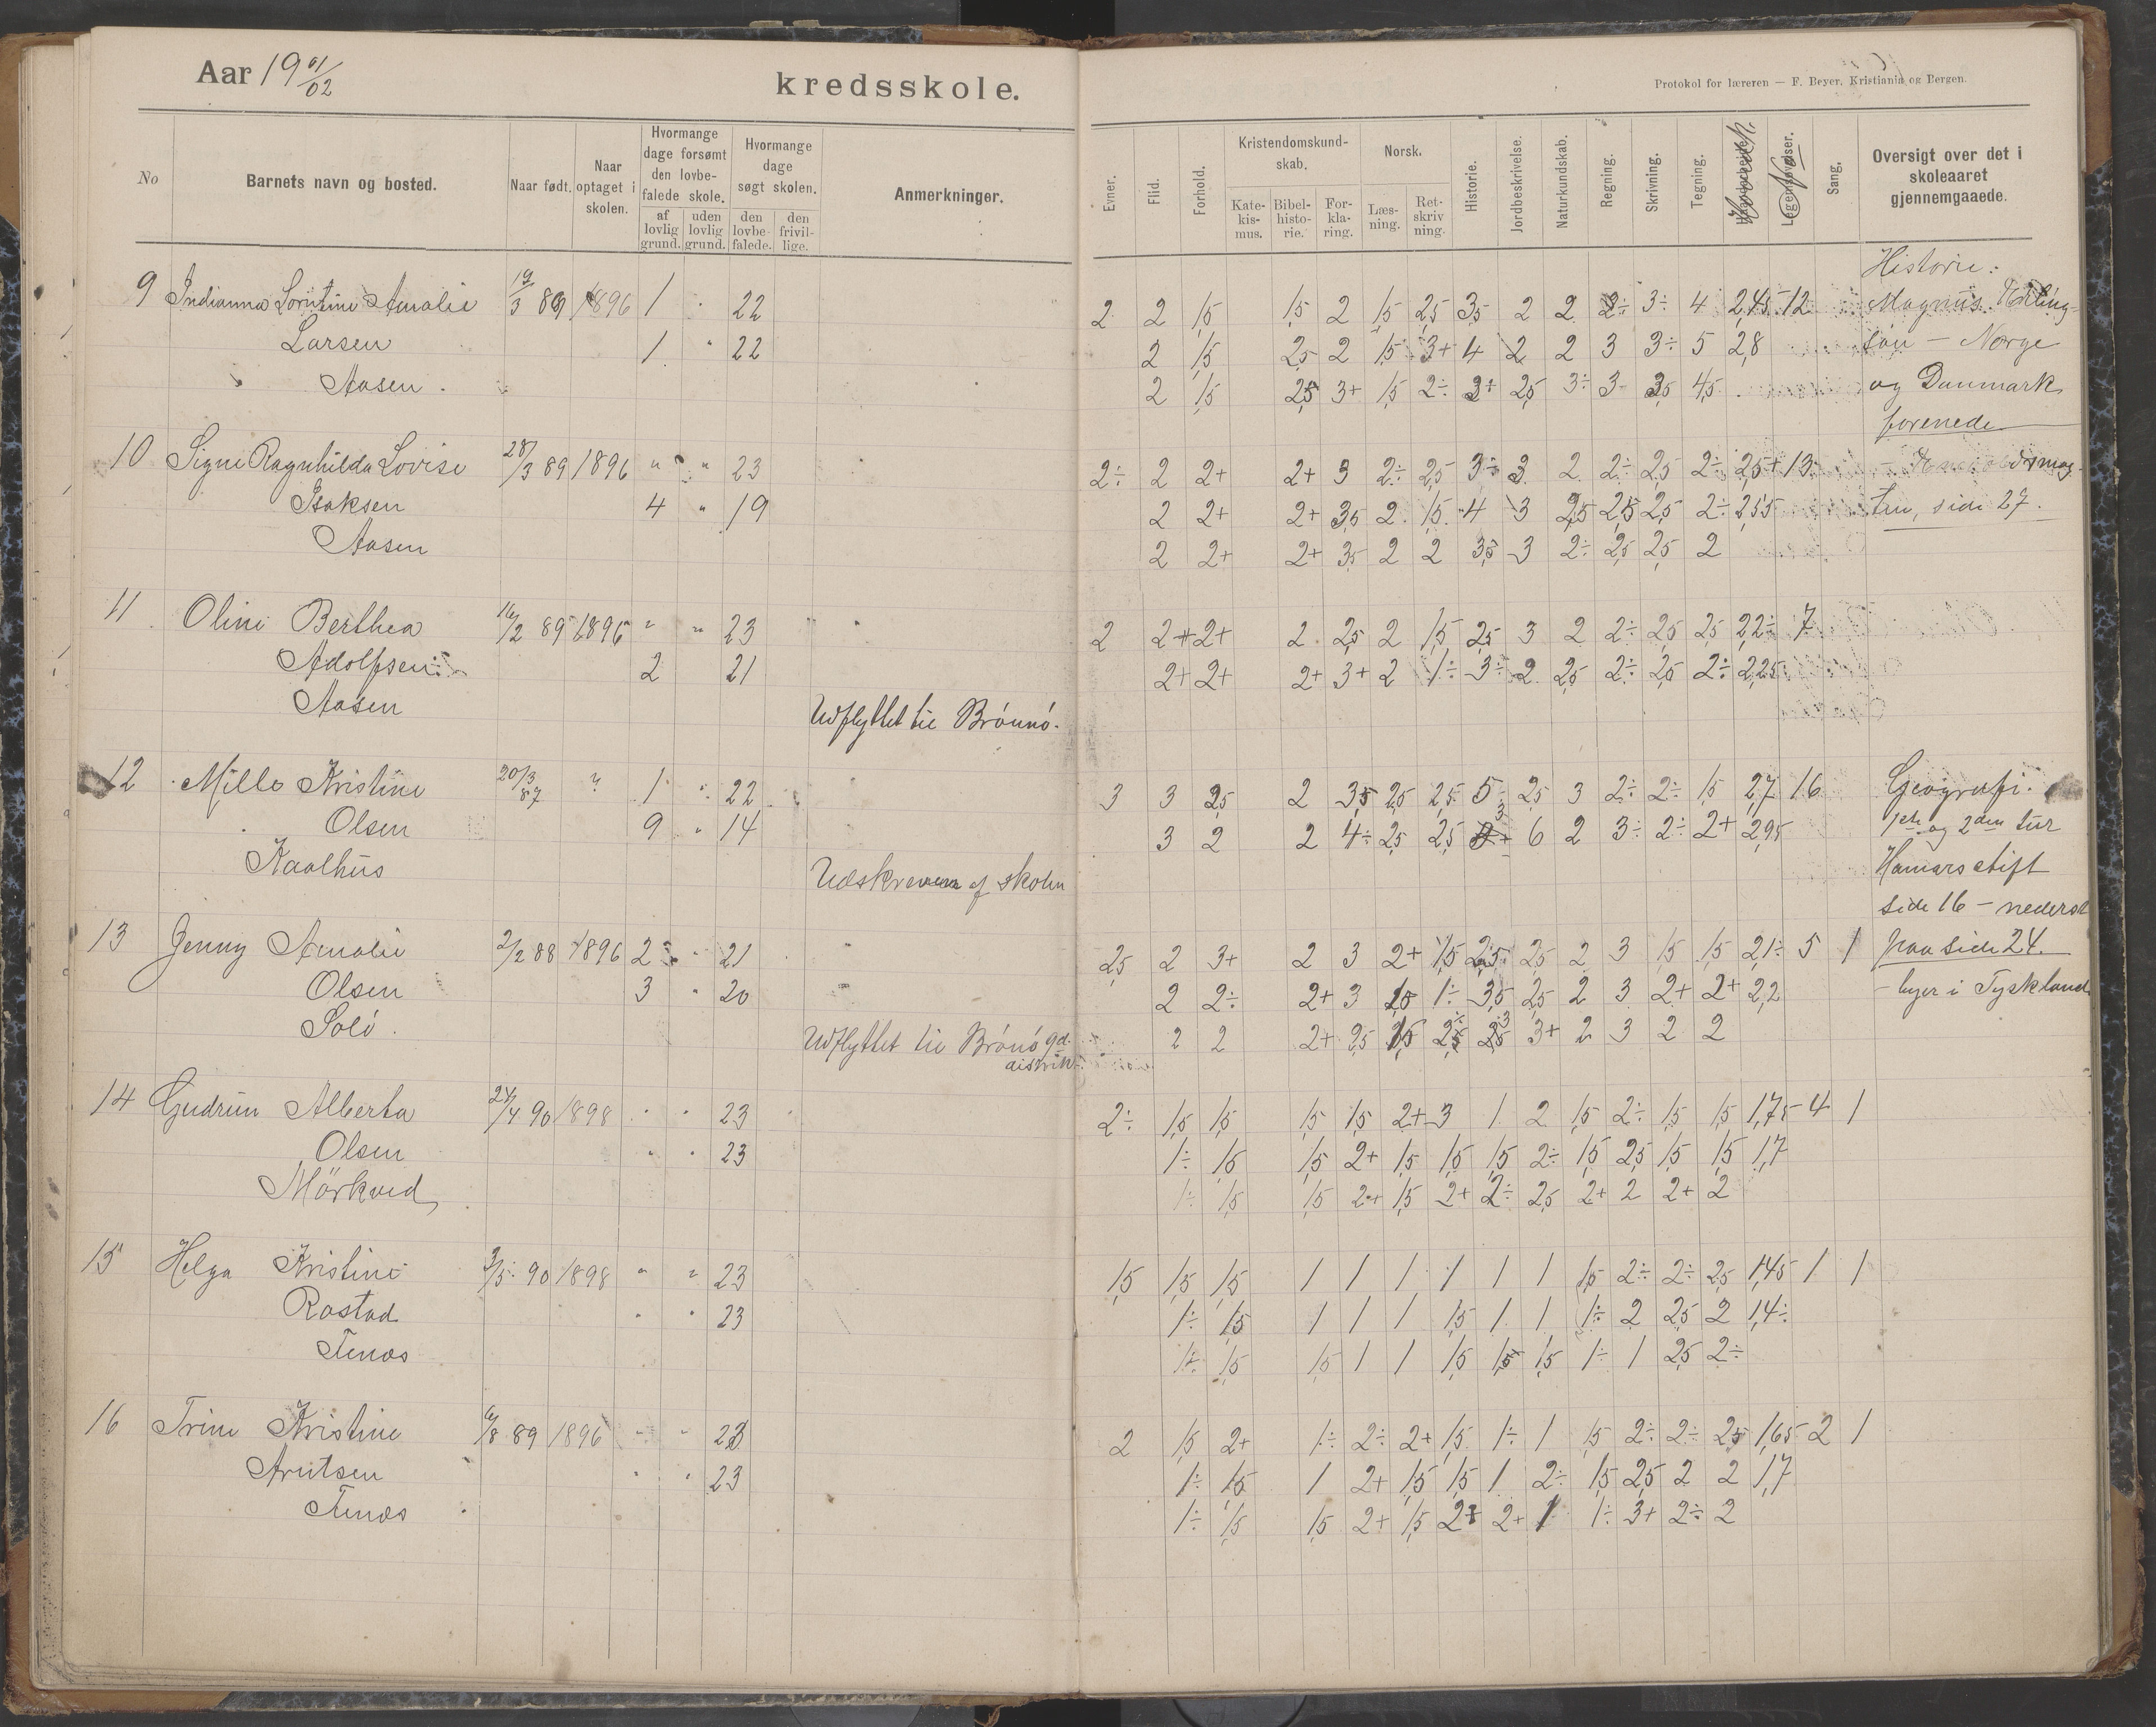 Aar 19 01/02
kredsskole.
Protokol for læreren — F. Beyer, Kristiania og Bergen.
No
Barnets navn og bosted.
Naar født.
Naar optaget i skolen.
Hvormange dage forsømt den lovbefalede skole.
af lovlig grund.
uden lovlig grund.
Hvormange dage søgt skolen.
den lovbefalede.
den frivillige.
Anmerkninger.
Evner.
Flid.
Forhold.
Kristendomskundskab.
Katekismus.
Bibelhistorie.
Forklaring.
Norsk.
Læsning.
Retskrivning.
Historie.
Jordbeskrivelse.
Naturkundskab.
Regning.
Skrivning.
Tegning.
Haandarbeide.
Legemsøvelser.
Sang.
Oversigt over det i skoleaaret gjennemgaaede.
Historie:
9 Indianna Lorntine Amalie 19/3 89 1896 1 " 22 2 2 1,5 1,5 2 1,5 2,5 3,5 2 2 2÷ 3÷ 4 2,45 12 Magnus Erling-
Larsen 1 " 22 2 1,5 2,5 2 1,5 3+ 4 2 2 3 3÷ 5 2,8 søn — Norge
Aasen. 2 1,5 2,5 3+ 1,5 2÷ 3+ 2,5 3÷ 3 3,5 4,5 og Danmark
forenede
10 Signe Ragnhilda Lovise 28/3 89 1896 " " 23 2÷ 2 2+ 2+ 3 2÷ 2,5 3÷ 3 2 2÷ 2,5 2÷ 2,5+ 13
Isaksen 4 " 19 2 2+ 2+ 3,5 2 1,5 4 3 2,5 2,5 2,5 2÷ 2,55 ten, side 27.
Aasen 2 2+ 2+ 3,5 2 2 3,5 3 2÷ 2,5 2,5 2
11 Oline Berthea 16/2 89 1896 " " 23 2 2+ 2+ 2 2,5 2 1,5 2,5 3 2 2÷ 2,5 2,5 2,2÷ 7
Adolfsen 2 21 2+ 2+ 2+ 3+ 2 1÷ 3÷ 2 2,5 2÷ 2,5 2÷ 2,25
Aasen Udflyttet til Brönnö.
12 Mille Kristine 20/3 87 " 1 " 22 3 3 2,5 2 3,5 2,5 2,5 5 2,5 3 2÷ 2÷ 1,5 2,7 16 Geografi.
Olsen 9 " 14 3 2 2 4÷ 2,5 2,5 3 6 2 3÷ 2÷ 2+ 2,95 1ste og 2den tur
Kaalhus Udskreven af skolen Hamars stift
side 16 — nederst
13 Jenny Amalie 2/2 88 1896 2 " 21 2,5 2 3+ 2 3 2+ 1,5 2,5 2,5 2 3 1,5 1,5 2,1÷ 5 1 paa side 24.
Olsen 3 " 20 2 2÷ 2+ 3 1,5 1÷ 3,5 2,5 2 3 2+ 2+ 2,2 — byer i Tyskland
Solö. Udflyttet til Brönö gd. distrikt 2 2 2+ 2,5 1,5 2,5 3 3+ 2 3 2 2
14 Gudrun Alberta 24/4 90 1898 " " 23 2÷ 1,5 1,5 1,5 1,5 2+ 3 1 2 1,5 2÷ 1,5 1,5 1,75 4 1
Olsen " " 23 1÷ 1,5 1,5 2+ 1,5 1,5 1,5 2÷ 1,5 2,5 1,5 1,5 1,7
Mörkved 1÷ 1,5 1,5 2+ 1,5 2+ 2÷ 2,5 2+ 2 2+ 2
15 Helga Kristine 3/5 90 1898 " " 23 1,5 1,5 1,5 1 1 1 1 1 1 1,5 2÷ 2÷ 2,5 1,45 1 1
Rostad " " 23 1÷ 1,5 1 1 1 1,5 1 1 1÷ 2 2,5 2 1,4÷
Tenas 1÷ 1,5 1,5 1 1 1,5 1,5 1,5 1÷ 1 2,5 2÷
16 Trine Kristine 6/8 89 1896 " " 23 2 1,5 2+ 1÷ 2÷ 2+ 1,5 1÷ 1 1,5 2÷ 2÷ 2,5 1,65 2 1
Arntsen " " 23 1÷ 1,5 1 2+ 1,5 1,5 1 2÷ 1,5 2,5 2 2 1,7
Tenas 1÷ 1,5 1,5 2+ 1,5 2+ 2+ 1 1÷ 3+ 2÷ 2